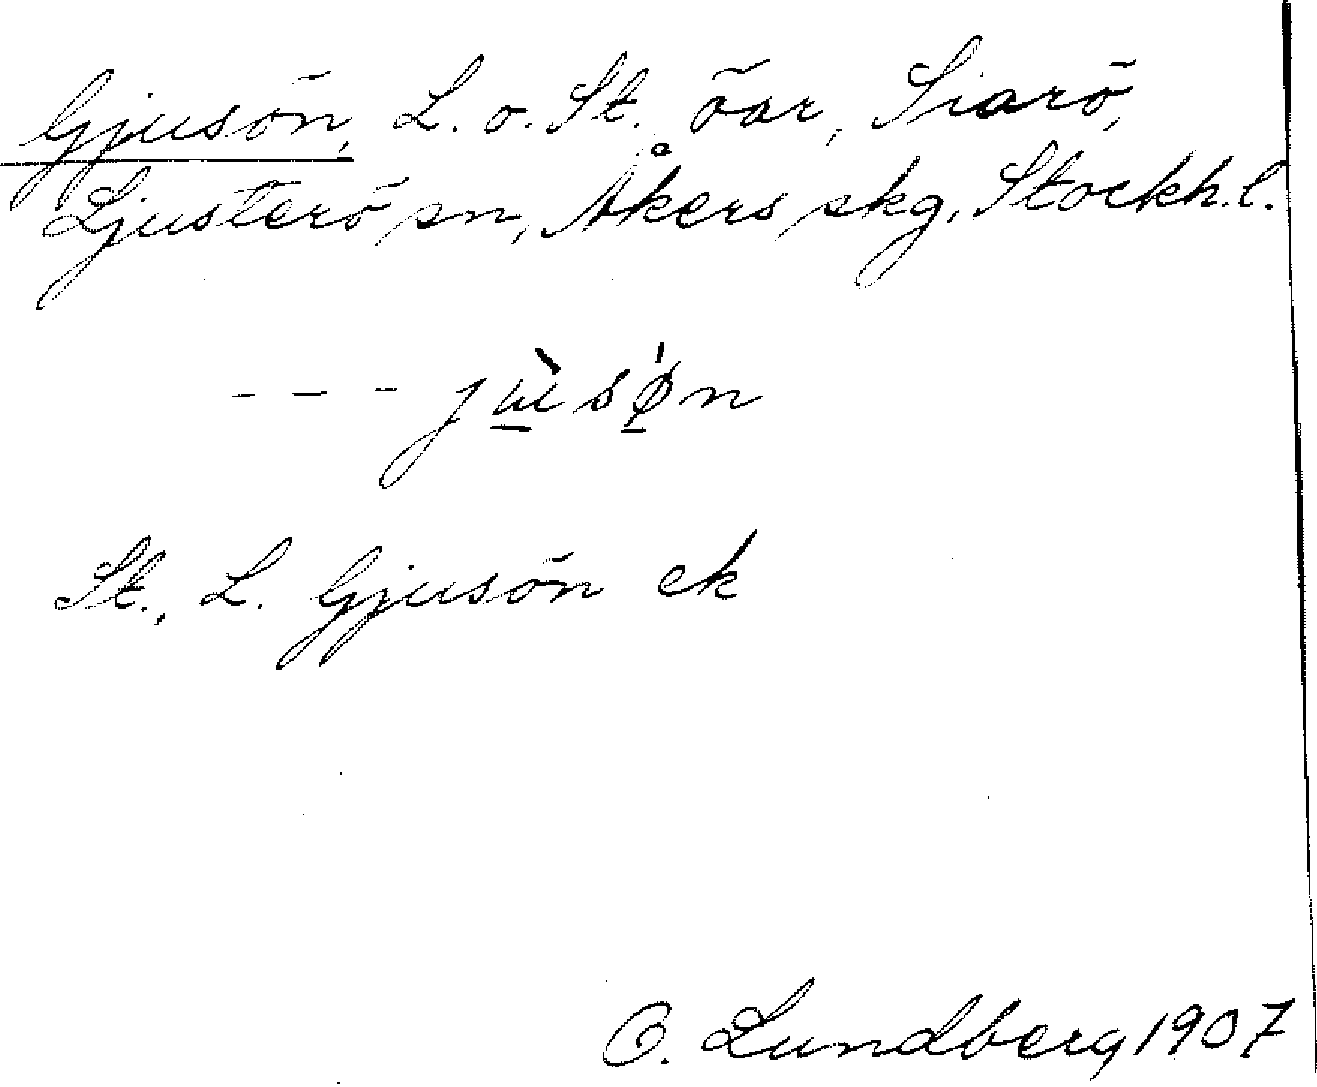 Gjusön, L. o. St. öar, Siarö,
Ljusterö sn, Åkers skg, Stockh. l.
- - - jɯ̀sø̍n
St., L. Gjusön ek
O. Lundberg 1907